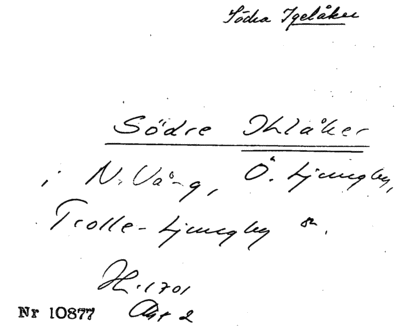 Södra Igelåker
Södre Ihlåker
i N. Vång, Ö. Ljungby,
Trolle-Ljungby sn.
H. 1701
Nr 10877 Akt 2